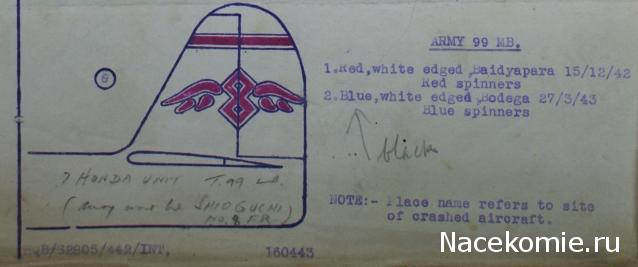 ARMY 99 MB.
1.Red,white edged,Baidyapara 15/12/42
Red spinners
2.Blue,white edged,Bodega 27/3/43
Blue spinners
black
? HONDA UNIT T.99 LB.
(may now be SHIOGUCHI
NO. 8 F.R.)
NOTE:- Place name refers to site
of crashed aircraft.
B/S2805/442/INT.
160443
Nacekomie.ru